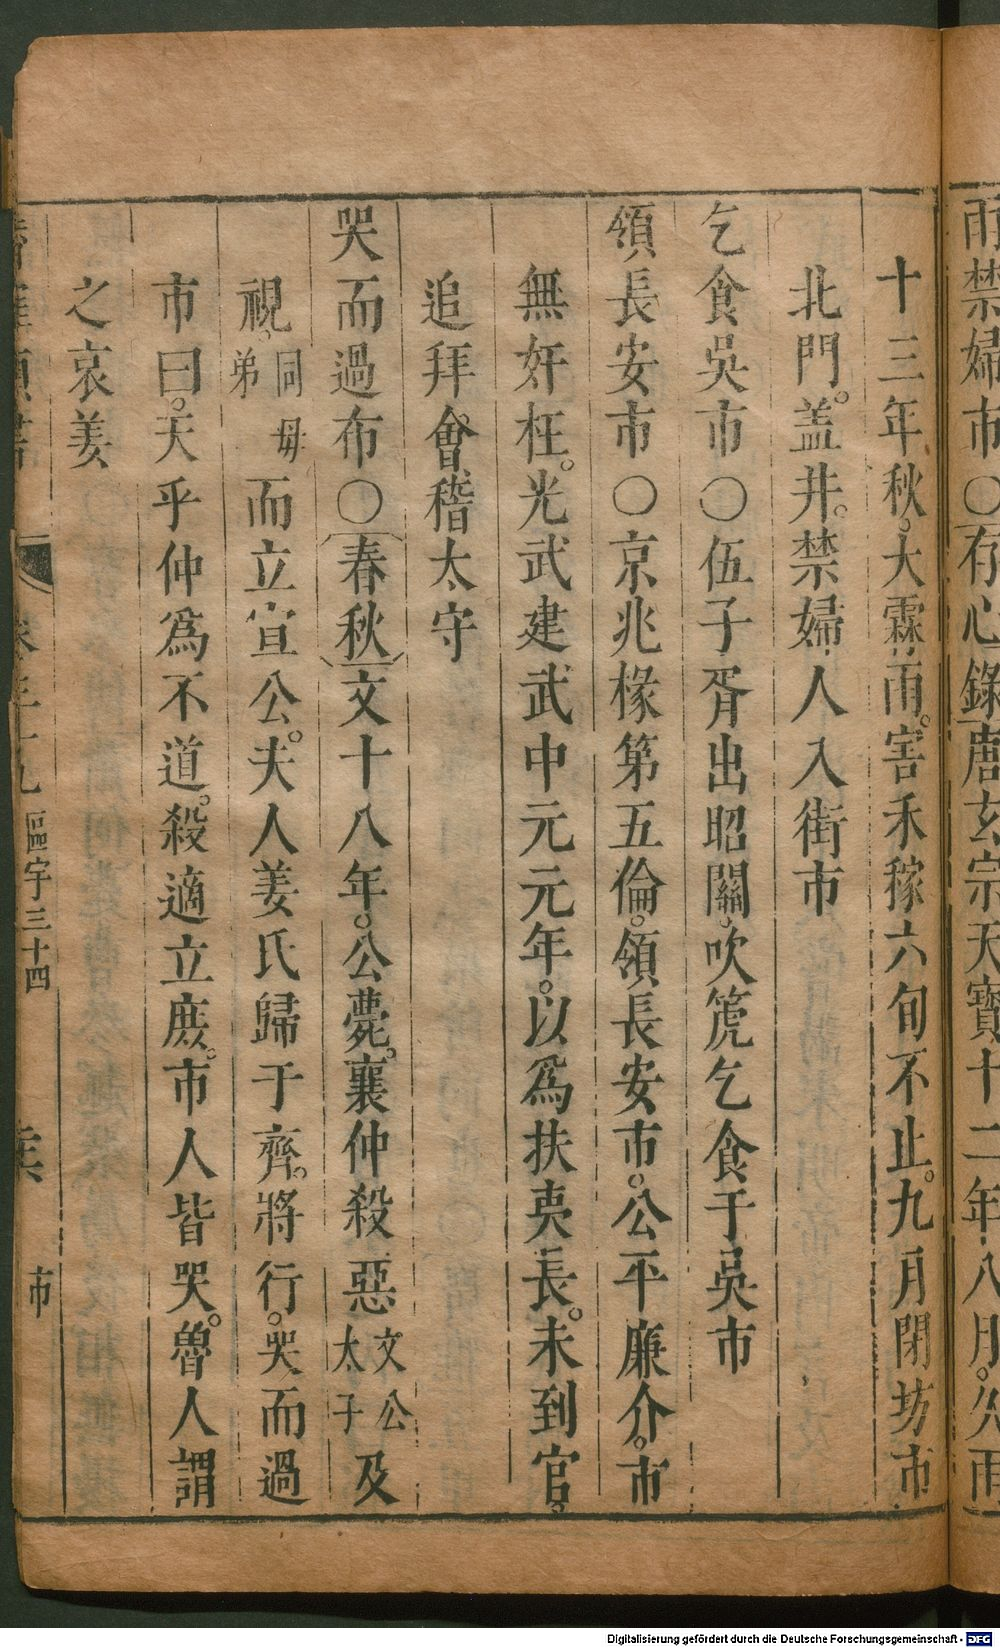 雨禁婦市〇存心錄唐玄宗天寶十二年八月久雨
十三年秋大霖雨害禾稼六旬不止九月閉坊市
北門蓋井禁婦人入街市
乞食吳市〇伍子胥出昭關吹篪乞食于吳市
領長安市〇京兆椽第五倫領長安市公平廉介市
無奸枉光武建武中元元年以為扶夷長未到官
追拜會稽太守
哭而過布〇春秋文十八年公薨襄仲殺惡文公太子及
視同母弟而立宣公夫人姜氏歸于齊將行哭而過
市曰天乎仲為不道殺適立庶市人皆哭魯人謂
之哀姜
卷三十九 區宇三十四 市
Digitalisierung gefördert durch die Deutsche Forschungsgemeinschaft - DFG